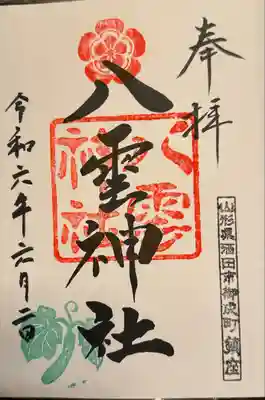 奉拝
八雲神社
八雲神社
山形県酒田市御成町 鎮座
令和六年六月二日